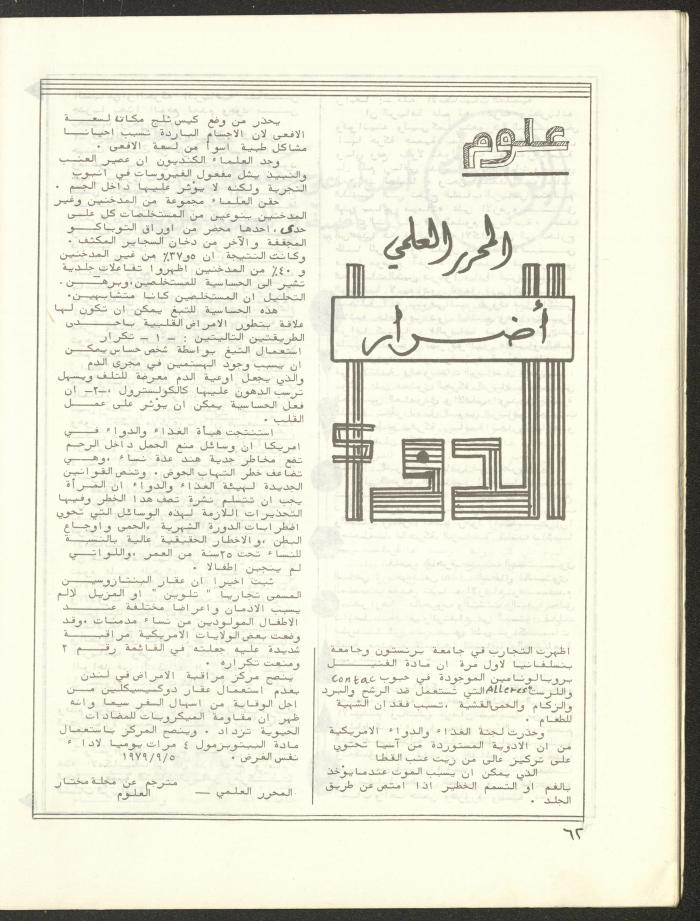 علوم
المحرر العلمي
أضرار
الدواء
اظهرت التجارب في جامعة برنستون وجامعة
بنسلفانيا لاول مرة ان مادة الفنيل
بروبالونامين الموجودة في حبوب Contac
واللرست Allerest التي تستعمل ضد الرشح والبرد
والزكام والحمى القشية ، تسبب فقدان الشهية
للطعام .
وحذرت لجنة الغذاء والدواء الامريكية
من ان الادوية المستوردة من آسيا تحتوي
على تركيز عالى من زيت عنب القطا
الذي يمكن ان يسبب الموت عندما يؤخذ
بالفم او التسمم الخطير اذا امتص عن طريق
الجلد .
يحذر من وضع كيس ثلج مكانه لسعة
الافعى لان الاجسام الباردة تسبب احيانا
مشاكل طبية اسوأ من لسعة الافعى .
وجد العلماء الكنديون ان عصير العنب
والنبيذ يشل مفعول الفيروسات في انبوب
التجربة ولكنه لا يؤثر عليها داخل الجسم .
حقن العلماء مجموعة من المدخنين وغير
المدخنين بنوعين من المستخلصات كل على
حدى ، احدها محضر من اوراق التوباكو
المجففة والآخر من دخان السجاير المكثف .
وكانت النتيجة ان ٣٧٫٥٪ من غير المدخنين
و ٤٠٪ من المدخنين اظهروا تفاعلات جلدية
تشير الى الحساسية للمستخلصين ، وبرهن
التحليل ان المستخلصين كانا متشابهين .
هذه الحساسية للتبغ يمكن ان تكون لها
علاقة بتطور الامراض القلبية باحدى
الطريقتين التاليتين : ـ ١ ـ تكرار
استعمال التبغ بواسطة شخص حساس يمكن
ان يسبب وجود الهستمين في مجرى الدم
والذي يجعل اوعية الدم معرضة للتلف ويسهل
ترسب الدهون عليها كالكولسترول ، ـ٢ـ ان
فعل الحساسية يمكن ان يؤثر على عمل
القلب .
استنتجت هيأة الغذاء والدواء في
امريكا ان وسائل منع الحمل داخل الرحم
تضع مخاطر جدية هند عدة نساء ، وهي
تضاعف خطر التهاب الحوض . وتنص القوانين
الجديدة لهيئة الغذاء والدواء ان المرأة
يجب ان تتسلم نشرة تصف هذا الخطر وفيها
التحذيرات اللازمة لهذه الوسائل التي تحوي
اضطرابات الدورة الشهرية ، الحمى واوجاع
البطن ، والاخطار الحقيقية عالية بالنسبة
للنساء تحت ٢٥ سنة من العمر ، واللواتي
لم ينجبن اطفالا .
ثبت اخيرا ان عقار البنتازوسين
المسمى تجاريا " تلوين " او المزيل لالم
يسبب الادمان واعراضا مختلفة عند
الاطفال المولودين من نساء مدمنات ، وقد
وضعت بعض الولايات الامريكية مراقبة
شديدة عليه جعلته في القائمة رقم ٢
ومنعت تكراره .
ينصح مركز مراقبة الامراض في لندن
بعدم استعمال عقار دوكسيسكلين من
اجل الوقاية من اسهال السفر سيما وانه
ظهر ان مقاومة الميكروبات للمضادات
الحيوية تزداد . وينصح المركز باستعمال
مادة الببتوبزمول ٤ مرات يوميا لاداء
نفس الغرض . ١٩٧٩/٩/٥
مترجم عن مجلة مختار
العلوم
المحرر العلمي ـــ
٦٢